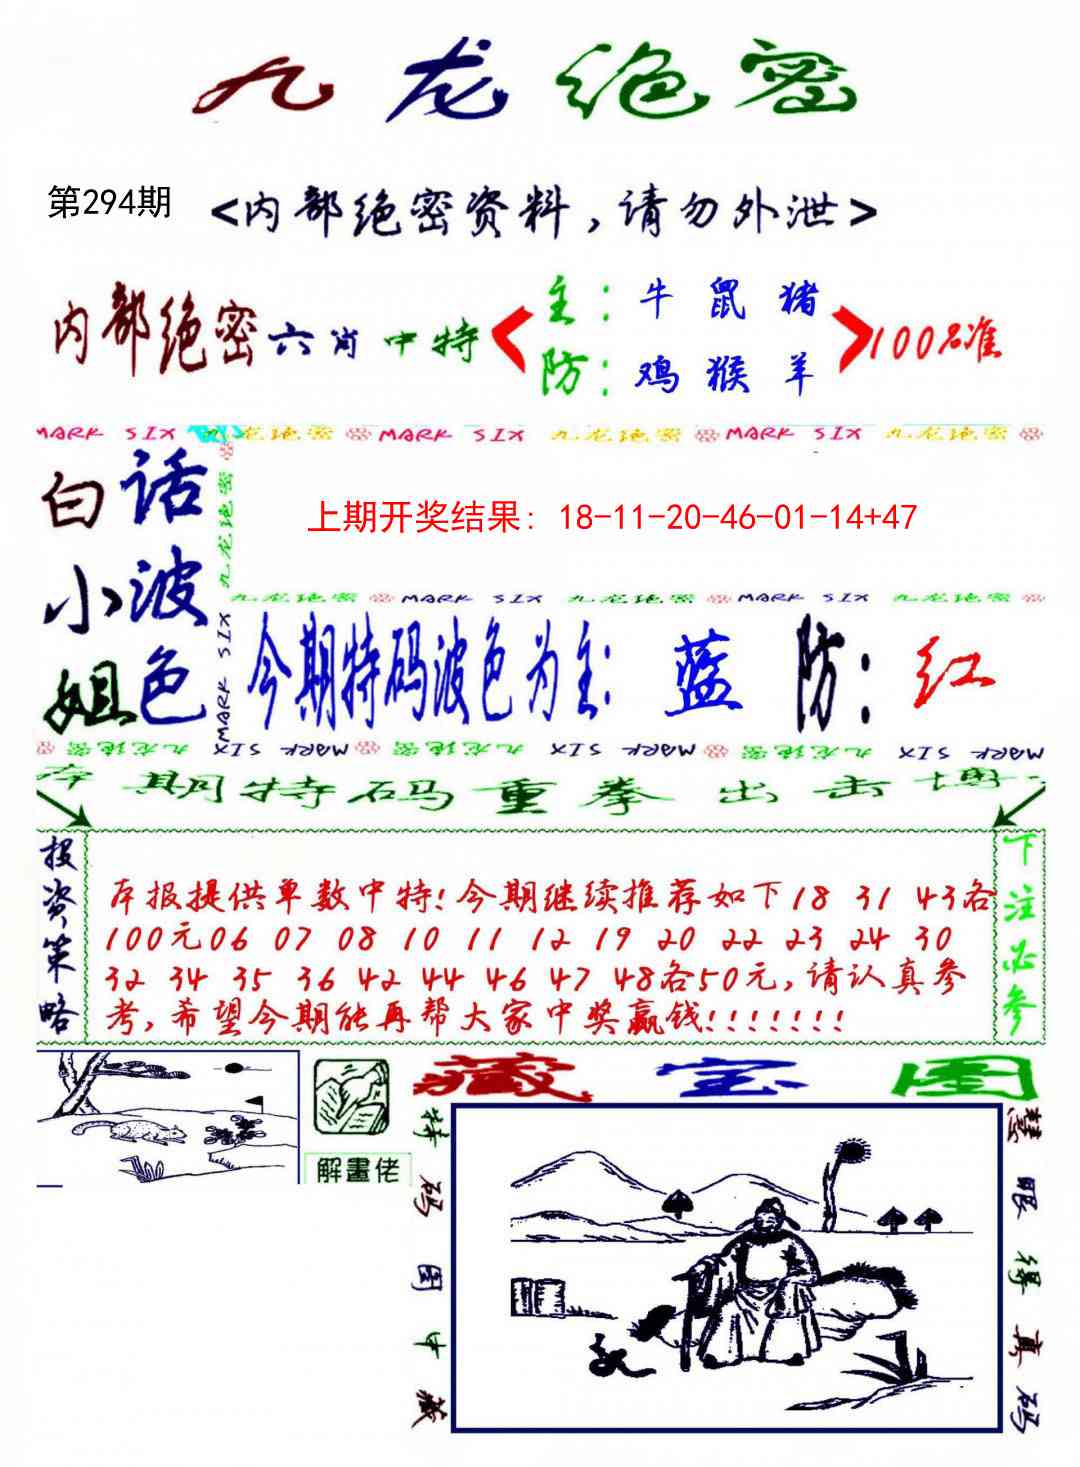 九龙绝密
第294期 <内部绝密资料,请勿外泄>
内部绝密六肖中特
主:牛 鼠 猪
防:鸡 猴 羊
100%准
MARK SIX 九龙绝密 MARK SIX 九龙绝密 MARK SIX 九龙绝密
白话小波姐色
九龙绝密
MARK SIX
上期开奖结果: 18-11-20-46-01-14+47
九龙绝密 MARK SIX 九龙绝密 MARK SIX 九龙绝密
今期特码波色为主: 蓝 防: 红
九龙绝密 MARK SIX 九龙绝密 MARK SIX 九龙绝密 MARK SIX
本期特码重拳出击博
投资策略
本报提供单数中特!今期继续推荐如下18 31 43各
100元06 07 08 10 11 12 19 20 22 23 24 30
32 34 35 36 42 44 46 47 48各50元,请认真参
考,希望今期能再帮大家中奖赢钱!!!!!!!
下注必参
解畫佬
藏宝图
特码图中藏
慧眼得真码